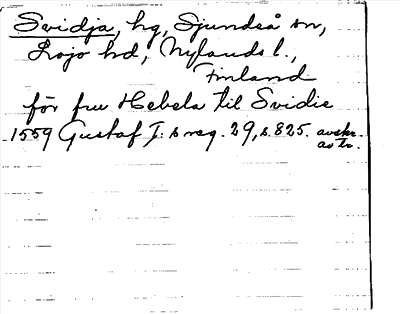 Svidja, hg, Sjundeå sn,
Lojo hd, Nylands l.,
Finland
för fru Hebela til Svidie
1559 Gustaf I:s reg. 29, s. 825. avskr.
av tr.